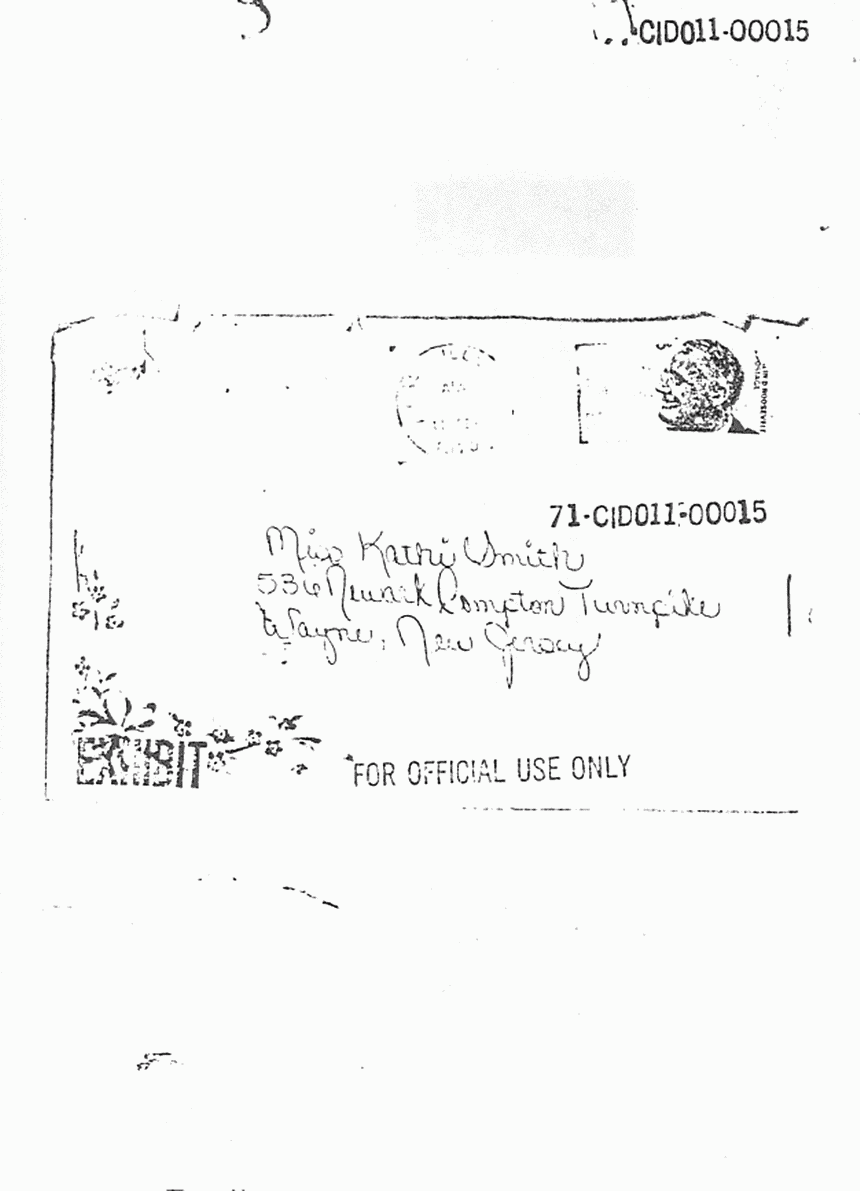 CID011-00015
71-CID011-00015
Miss Kathi Smith
536 Newark Pompton Turnpike
Wayne, New Jersey
EXHIBIT
FOR OFFICIAL USE ONLY